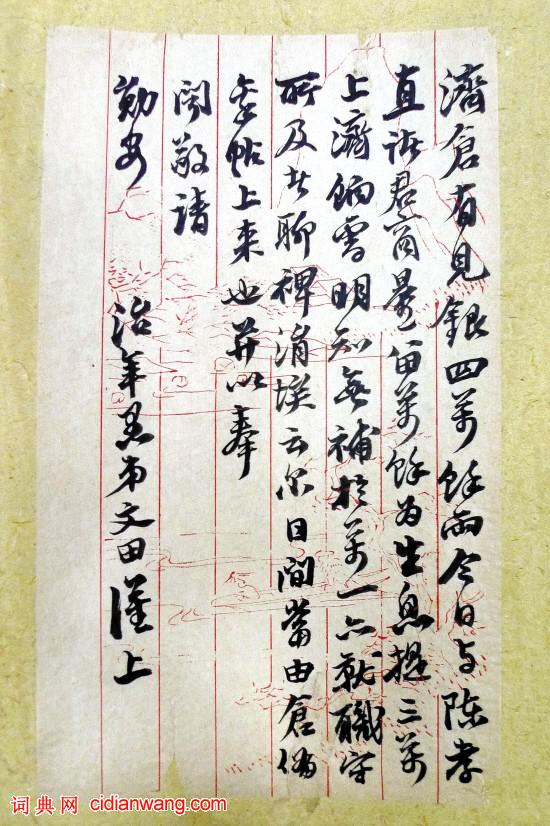 濟倉有見銀四萬餘兩今日与陳孝
直諸君商量留萬餘為生息提三萬
上濟餉需明知無補於萬一亦就職守
所及者聊裨涓埃云尔日間當由倉備
帖上來也并以奉
聞敬請
勛安 治年愚弟文田謹上
词典网 cidianwang.com